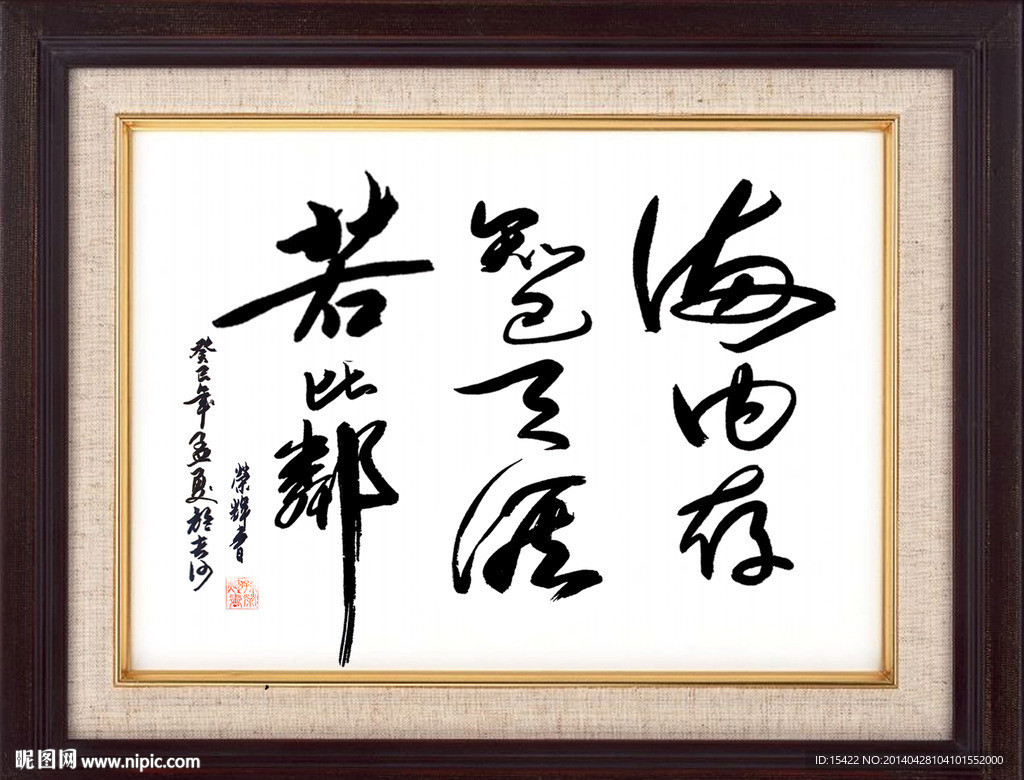 海内存
知己天涯
若比鄰
癸巳年孟夏於长沙
榮輝書
昵图网 www.nipic.com
ID:15422 NO:20140428104101552000